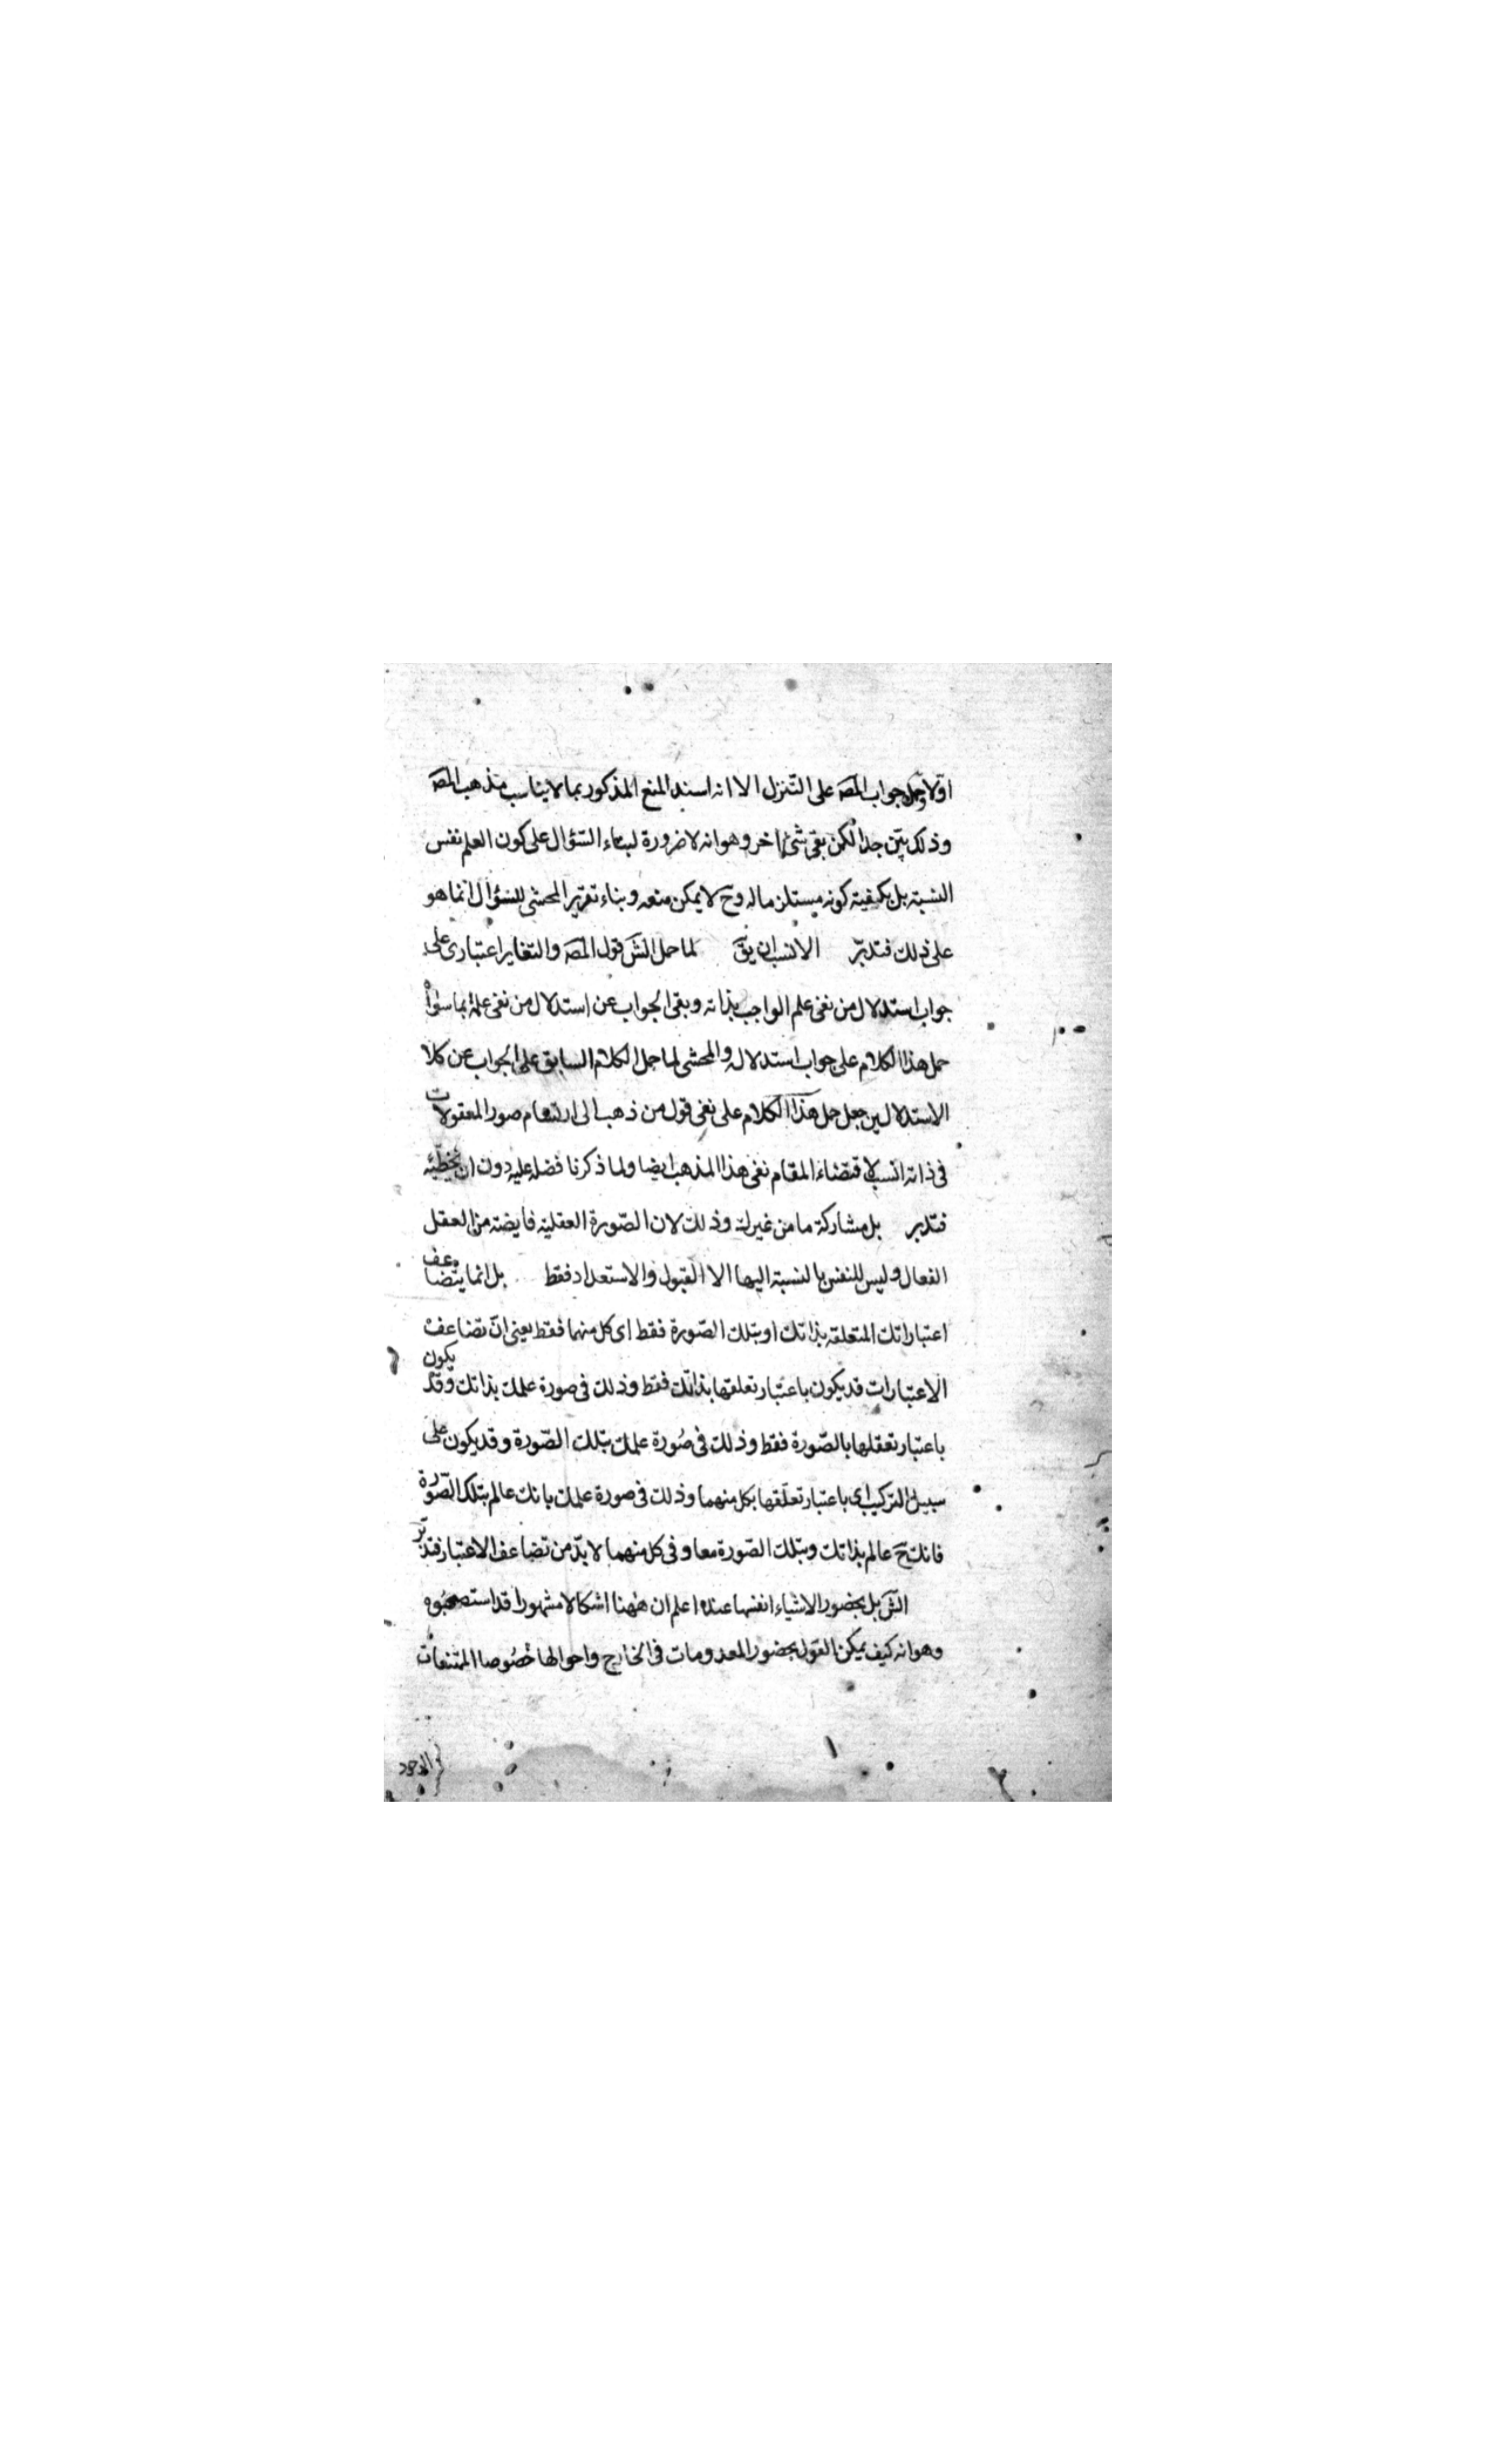 اوّلا وحمل جواب المصه على التنزل الا انه اسند المنع المذكور بما لا يناسب مذهب المصه
وذلك بيّن جدا لكن بقى شئ اخر وهو انه لا ضرورة لبناء السّؤال على كون العلم نفس
النسبة بل يكفيه كونه مستلزما له وح لا يمكن منعه وبناء تقرير المحشى للسّؤال انما هو
على ذلك فتدبّر الانسب ان يقَ لما حمل الشَ قول المصَه والتغاير اعتبارى على
جواب استدلال من نفى علم الواجب بذاته وبقى الجواب عن استدلال من نفى علمه بما سواه
حمل هذا الكلام على جواب استدلاله والمحشى لما حمل الكلام السابق على الجواب عن كلا
الاستدلالين جعل حمل هذا الكلام على نفى قول من ذهب الى ارتسام صور المعقولات
فى ذاته انسب لاقتضاء المقام نفى هذا المذهب ايضا ولما ذكرنا فضله عليه دون ان يخطّئه
فتدبر بل مشاركة ما من غيرك وذلك لان الصّورة العقلية فايضة من العقل
الفعال وليس للنفس بالنسبة اليها الا القبول والاستعداد فقط بل انما يتضاعف
اعتباراتك المتعلقة بذاتك او بتلك الصّورة فقط اى كل منهما فقط يعنى انّ تضاعف
الاعتبارات قد يكون باعتبار تعلقها بذاتك فقط وذلك فى صورة علمك بذاتك وقد يكون
باعتبار تعقلها بالصّورة فقط وذلك فى صُورة علمك بتلك الصّورة وقد يكون على
سبيل التركيب اى باعتبار تعلّقها بكل منهما وذلك فى صورة علمك بانك عالم بتلك الصّورة
فانك حَ عالم بذاتك وبتلك الصّورة معا وفى كل منهما لا بدّ من تضاعف الاعتبار فتدبّر
الشَ بل بحضور الاشياء انفسها عنده اعلم ان هٰهنا اشكالا مشهورا قد استصعبُوه
وهو انه كيف يمكن القول بحضور المعدومات فى الخارج واحوالها خصُوصا الممتنعات